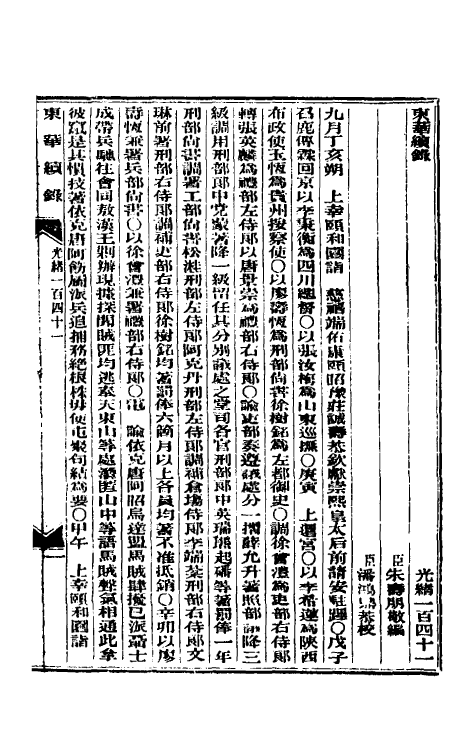 東華續錄
光緒一百四十一
臣朱壽朋敬編
臣潘鴻鼎恭校
九月丁亥朔　上幸頤和園詣　慈禧端佑康頤昭豫莊誠壽恭欽獻崇熙皇太后前請安駐蹕○戊子
召鹿傳霖回京以李秉衡爲四川總督○以張汝梅爲山東巡撫○庚寅　上還宮○以李希蓮爲陝西
布政使玉恆爲貴州按察使○以廖壽恆爲刑部尚書徐樹銘爲左都御史○調徐會灃爲吏部右侍郎
轉張英麟爲禮部左侍郎以唐景崇爲禮部右侍郎○諭吏部奏遵議處分一摺薛允升著照部議降三
級調用刑部郎中党蒙著降一級留任其分別議處之堂司各官刑部郎中英瑞熊起磻等著罰俸一年
刑部尚書調署工部尚書松溎刑部左侍郎阿克丹刑部左侍郎調補倉場侍郎李端棻刑部右侍郎文
琳前署刑部右侍郎調補吏部右侍郎徐樹銘均著罰俸六箇月以上各員均著不准抵銷○辛卯以廖
壽恆兼署兵部尚書○以徐會灃兼署禮部右侍郎○電　諭依克唐阿昭烏達盟馬賊肆擾已派聶士
成帶兵馳往會同敖漢王剿辦現據探聞賊匪均逃奈天東山等處藏匿山中等語馬賊聲氣相通此拿
彼竄是其慣技著依克唐阿飭屬派兵追捕務絕根株毋使屯聚勾結爲要○甲午　上幸頤和園詣
東華續錄　光緒一百四十一　一